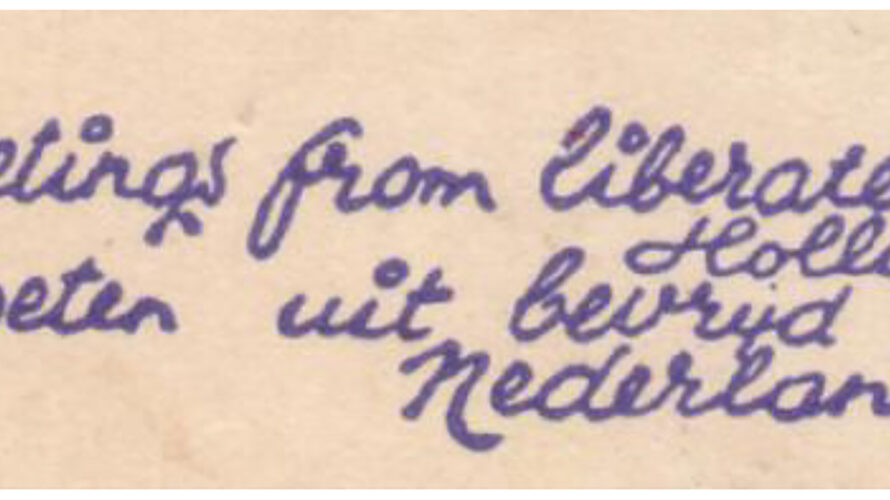 etings from liberate
Holl
oeten uit bevrijd
Nederlan